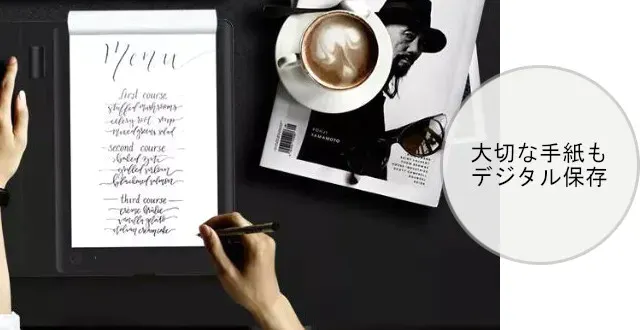 menu
first course
stuffed mushrooms
celery root soup
mixed greens salad
second course
baked ziti
grilled salmon
third course
creme brûlée
vanilla gelato
italian creamcake
YOHJI
YAMAMOTO
大切な手紙も
デジタル保存